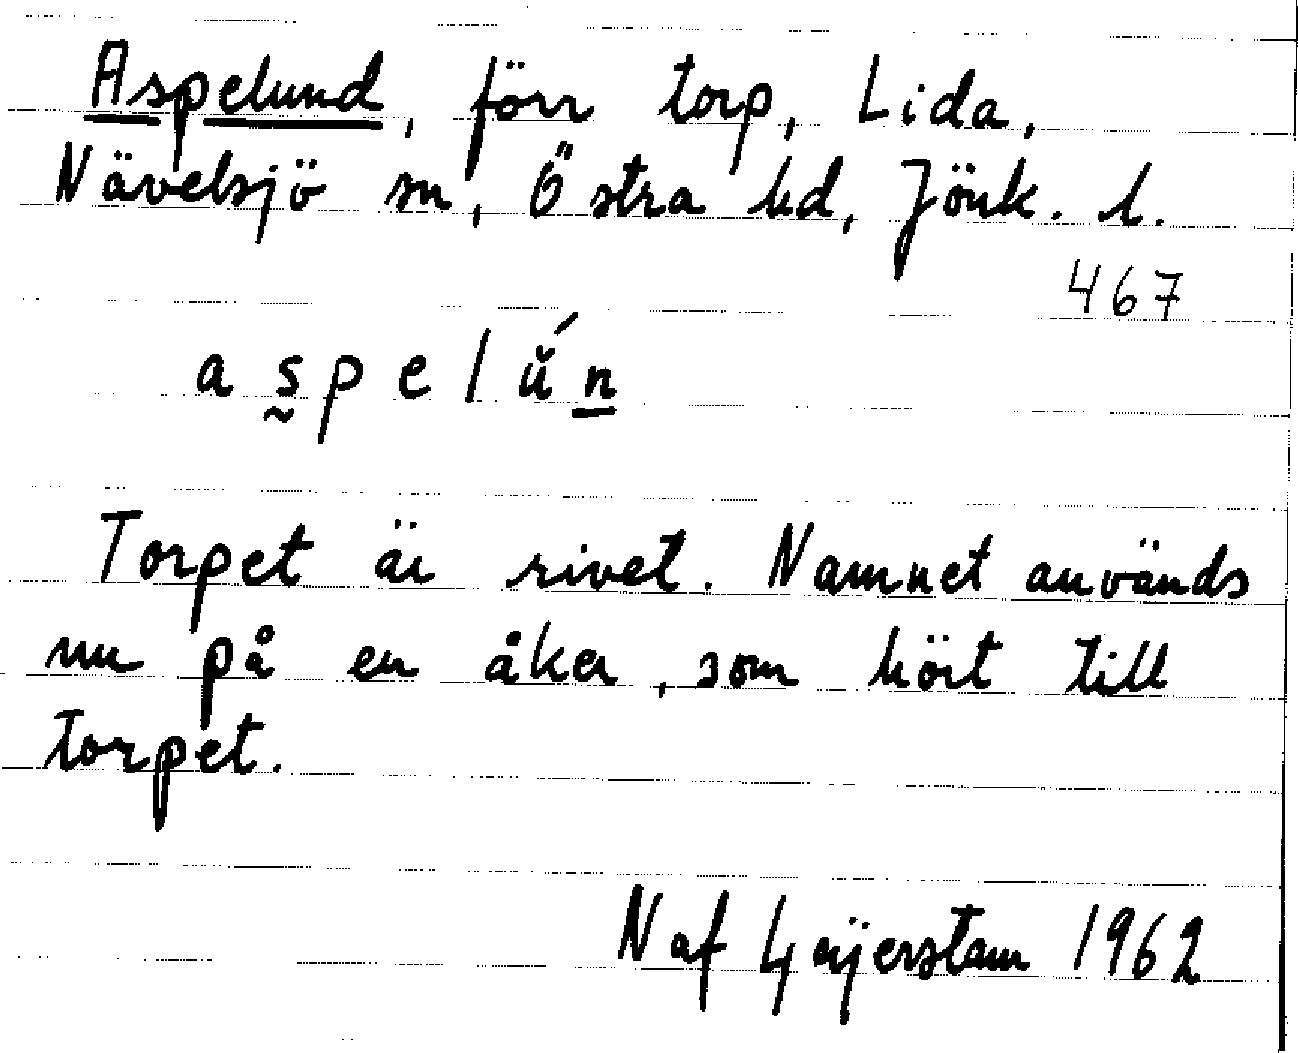 Aspelund, förr torp, Lida,
Nävelsjö sn, Östra hd, Jönk. l.
467
a s̰ p e l ŭ́ n̲
Torpet är rivet. Namnet används
nu på en åker, som hört till
torpet.
N af Geijerstam 1962